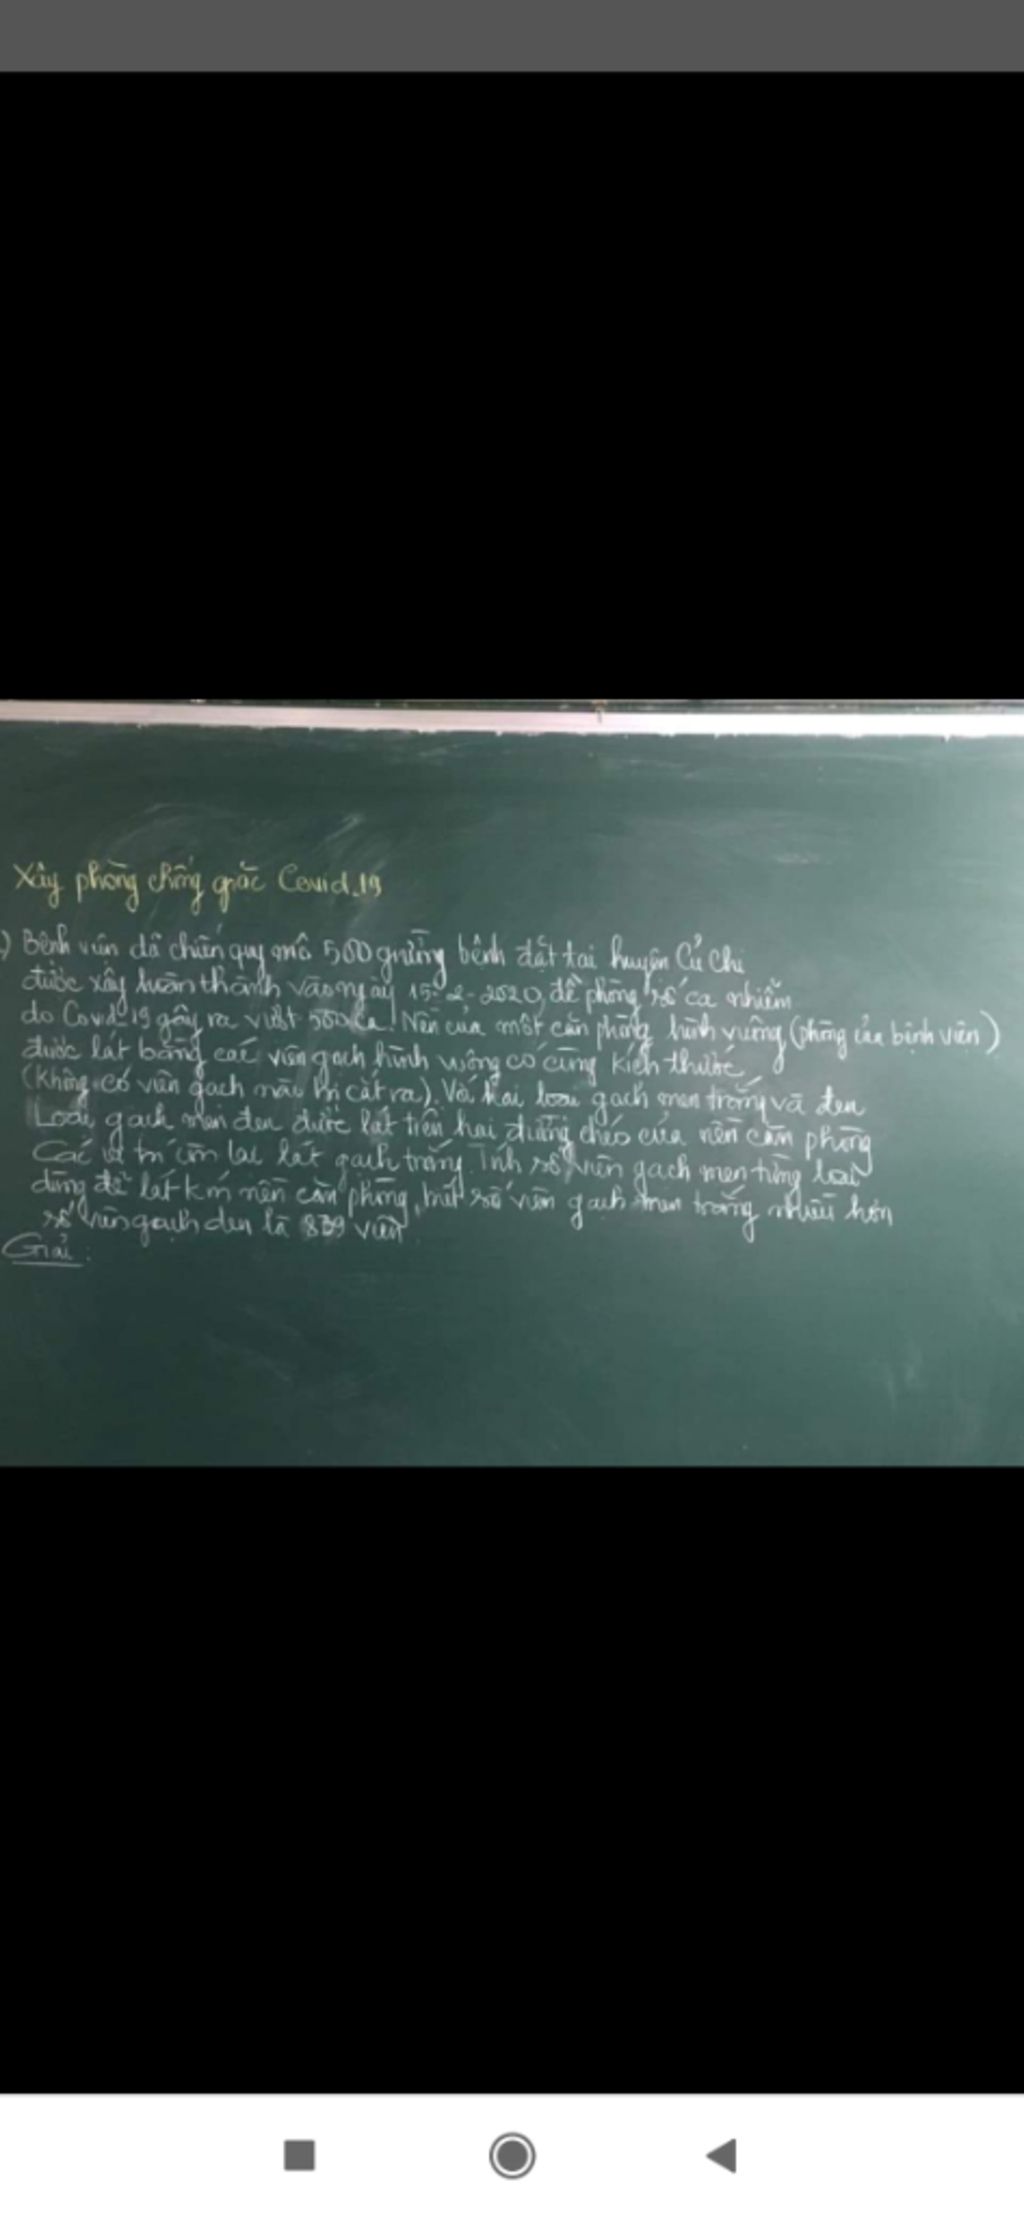 Xây phòng chống giặc Covid.19
) Bệnh viện dã chiến quy mô 500 giường bệnh đặt tại huyện Củ Chi
được xây hoàn thành vào ngày 15-2-2020, đề phòng số ca nhiễm
do Covid-19 gây ra vượt 500 ca. Nền của một căn phòng hình vuông (phòng của bệnh viện)
được lát bằng các viên gạch hình vuông có cùng kích thước
(không có viên gạch nào bị cắt ra). Với hai loại gạch men trắng và đen
Loại gạch men đen được lát trên hai đường chéo của nền căn phòng
Các vị trí còn lại lát gạch trắng. Tính số viên gạch men từng loại
dùng để lát kín nền căn phòng, biết số viên gạch men trắng nhiều hơn
số viên gạch đen là viên
Giải: